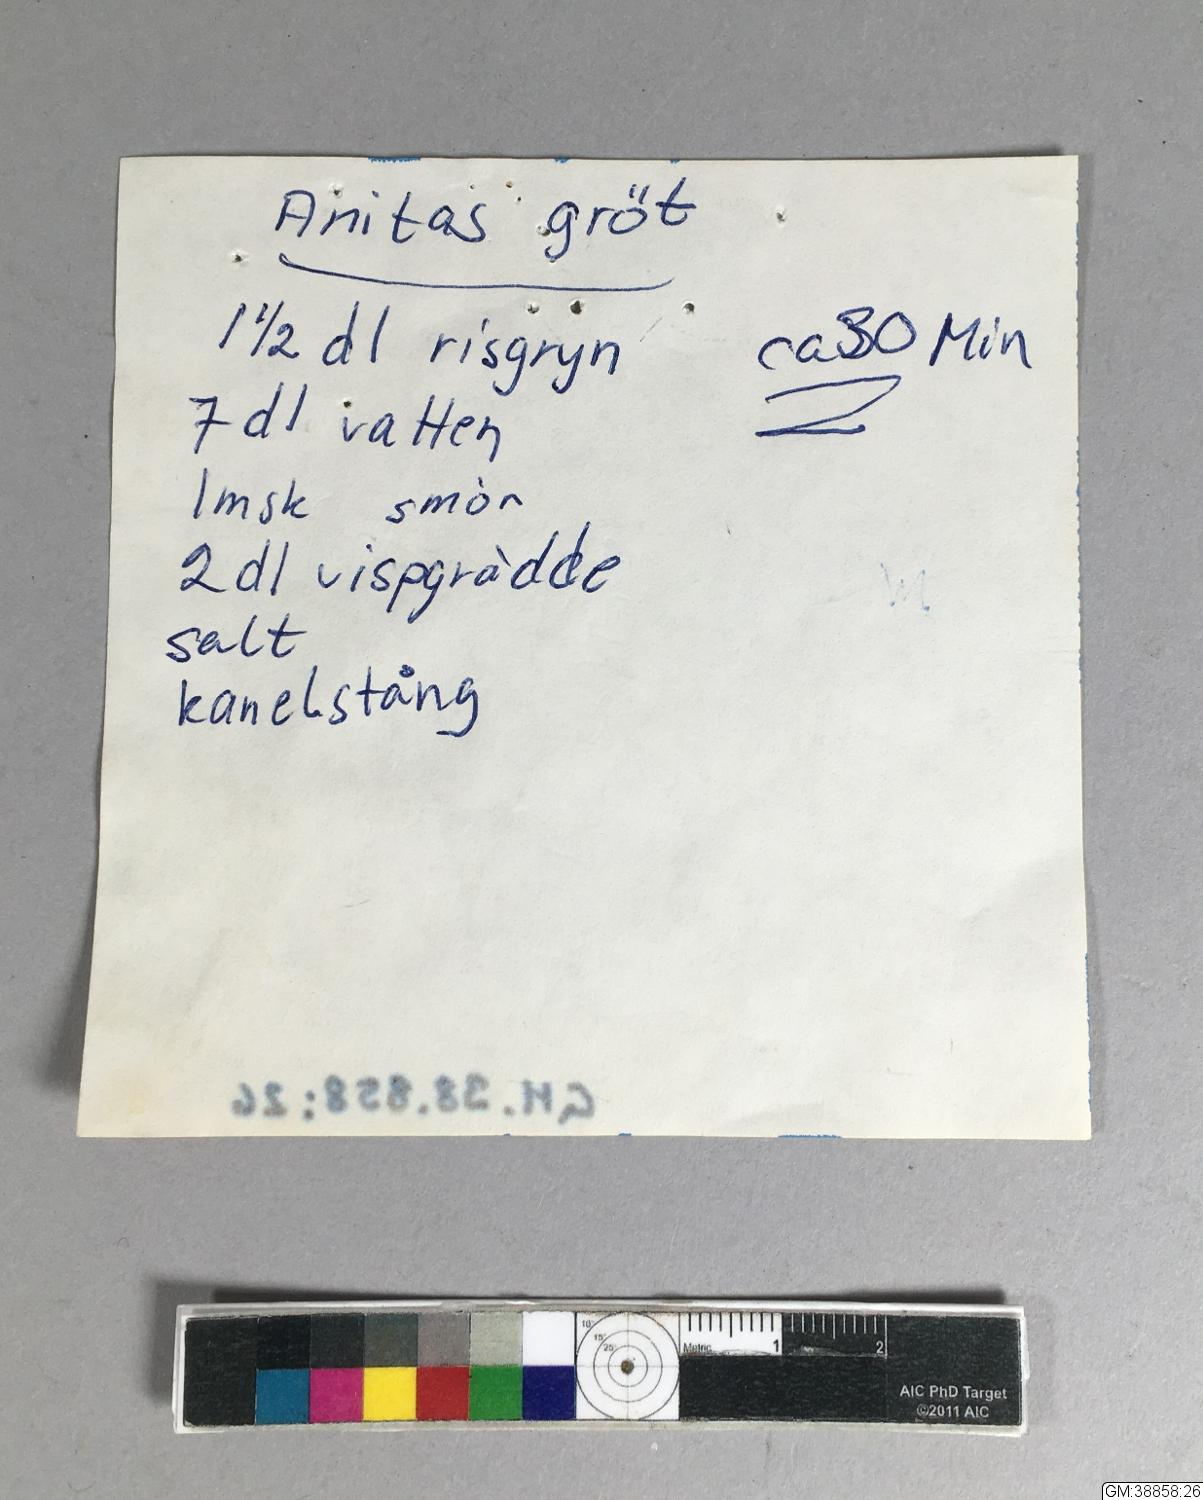 Anitas gröt
1 1/2 dl risgryn ca 30 Min
7 dl vatten
1 msk smör
2 dl vispgrädde
salt
kanelstång
GM.38.858:26
10°
15°
25°
Metric 1 2
AIC PhD Target
©2011 AIC
GM:38858:26